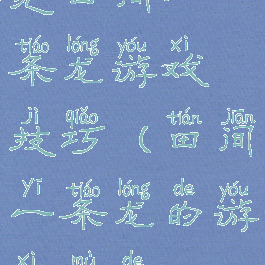 tiáo lóng yóu xì
条龙游戏
jì qiǎo tián jiān
技巧(田间
yī tiáo lóng de yóu
一条龙的游
xì mù de